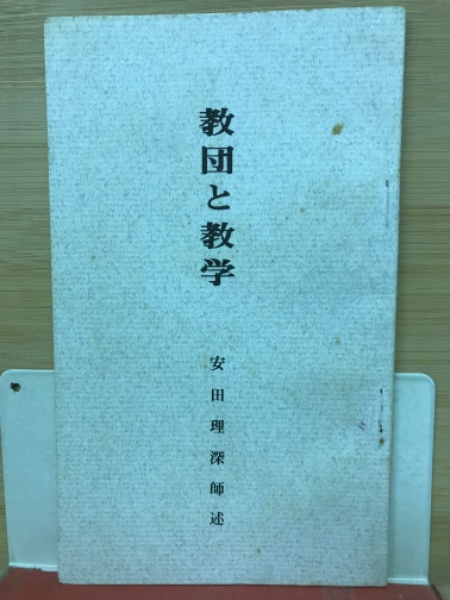 教団と教学
安田理深師述